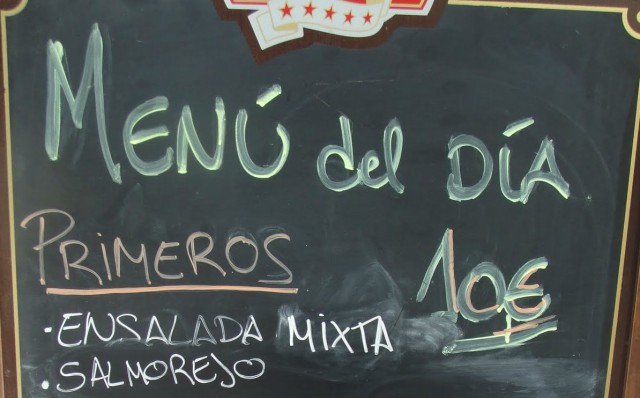 MENÚ del DÍA
PRIMEROS
10€
- ENSALADA MIXTA
• SALMOREJO